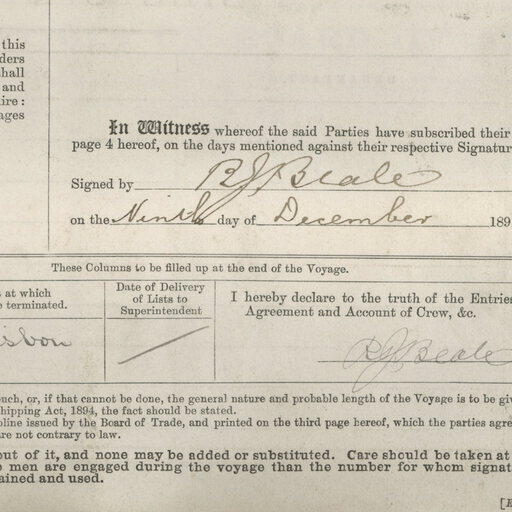 this
ders
hall
and
ire :
ages
In Witness whereof the said Parties have subscribed their
page 4 hereof, on the days mentioned against their respective Signatur
Signed by R J Beale
on the Ninth day of December 189
These Columns to be filled up at the end of the Voyage.
s at which
e terminated.
Date of Delivery
of Lists to
Superintendent
I hereby declare to the truth of the Entries
Agreement and Account of Crew, &c.
sbon
R J Beale
ouch, or, if that cannot be done, the general nature and probable length of the Voyage is to be giv
hipping Act, 1894, the fact should be stated.
pline issued by the Board of Trade, and printed on the third page hereof, which the parties agre
re not contrary to law.
out of it, and none may be added or substituted. Care should be taken at
e men are engaged during the voyage than the number for whom signat
ained and used.